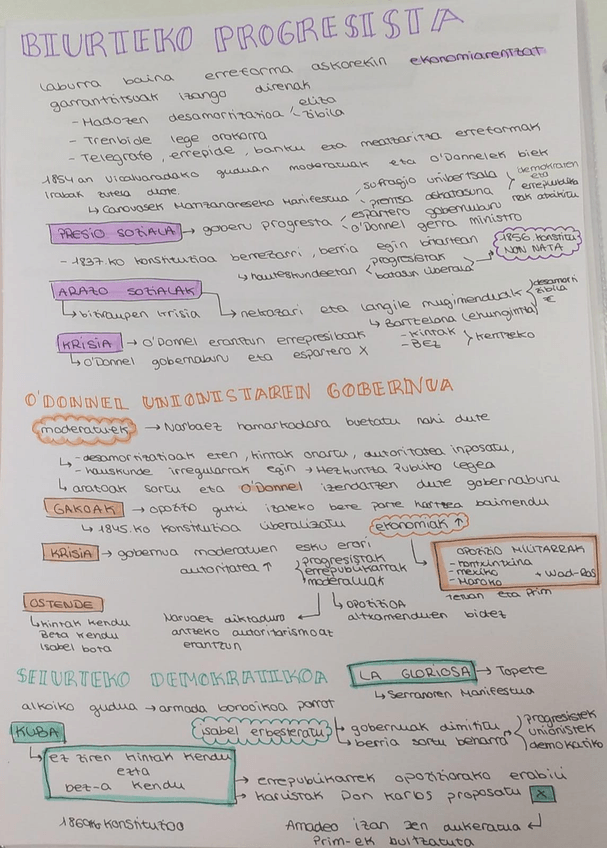 BIURTEKO PROGRESISTA
laburra baina erreforma askorekin ekonomiarentzat
garrantzitsuak izango direnak
- Madozen desamortizatioa elita
zibila
- Trenbide lege orokorra
- Telegrafo, errepide, banku eta meatzaritza erreformak
1854an Vicalvaradako guduan moderatuak eta O'Donnelek biek
irabazi zutela diote.
↳ Canovasek Manzanareseko Manifestua sufragio unibertsala
prentsa askatasuna
demokraten eta errepublika
PRESIO SOZIALA → goberu progresta espartero gobernuburu
O'Donnel gerra ministro
- 1837.ko konstituzioa berrezarri, berria egin bitartean
1856.konstitu NON NATA
↳ hauteskundeetan progresistak
batasun liberala
ARAZO SOZIALAK
↳ biziraupen krisia
↳ nekazari eta langile mugimenduak desamorti zibila
→ Bartzelona (ehungintza)
KRISIA → O'Donnel erantzun errepresiboak - kintak
- BEZ kentzeko
↳ O'Donnel gobernaburu eta espartero X
O'DONNEL UNIONISTAREN GOBERNUA
moderatuek → Narbaez hamarkadara bueltatu nahi dute
↳ - desamortizatioak eten, kintak onartu, autoritatea inposatu,
- hauskunde irregularrak egin → Hezkuntza Publiko legea
↳ arazoak sortu eta O'Donnel izendatzen dute gobernaburu
GAKOAK → opozizio gutxi izateko bere parte hartzea baimendu
↳ 1845.ko konstituzioa liberalizatu ekonomiak ↑
KRISIA → gobernua moderatuen esku erori
autoritatea ↑ progresistak
errepublikarrak
moderatuak
OPOZIZIO MILITARRAK
- Kontxintxina
- mexiko
- Maroko + Wad-Ras
Tetuan eta Prim
OSTENDE
↳ kintak kendu
Beta kendu
Isabel bota
Narvaez diktadura
antzeko autoritarismoaz
erantzun
↳ OPOZIZIOA
altxamenduen bidez
SEIURTEKO DEMOKRATIKOA
LA GLORIOSA → Topete
↳ Serranoren Manifestua
alkoiko gudua → armada borboikoa porrot
KUBA
Isabel erbesteratu ↳ gobernuak dimititu
↳ berria sortu beharra
progresistek
unionistek
demokratiko
↳ ez ziren kintak kendu
ezta
bez-a kendu
→ errepublikarrek opoziziorako erabili
→ karlistak Don Karlos proposatu X
1869ko konstituzioa
Amadeo izan zen aukeratua ↵
Prim-ek bultzatuta